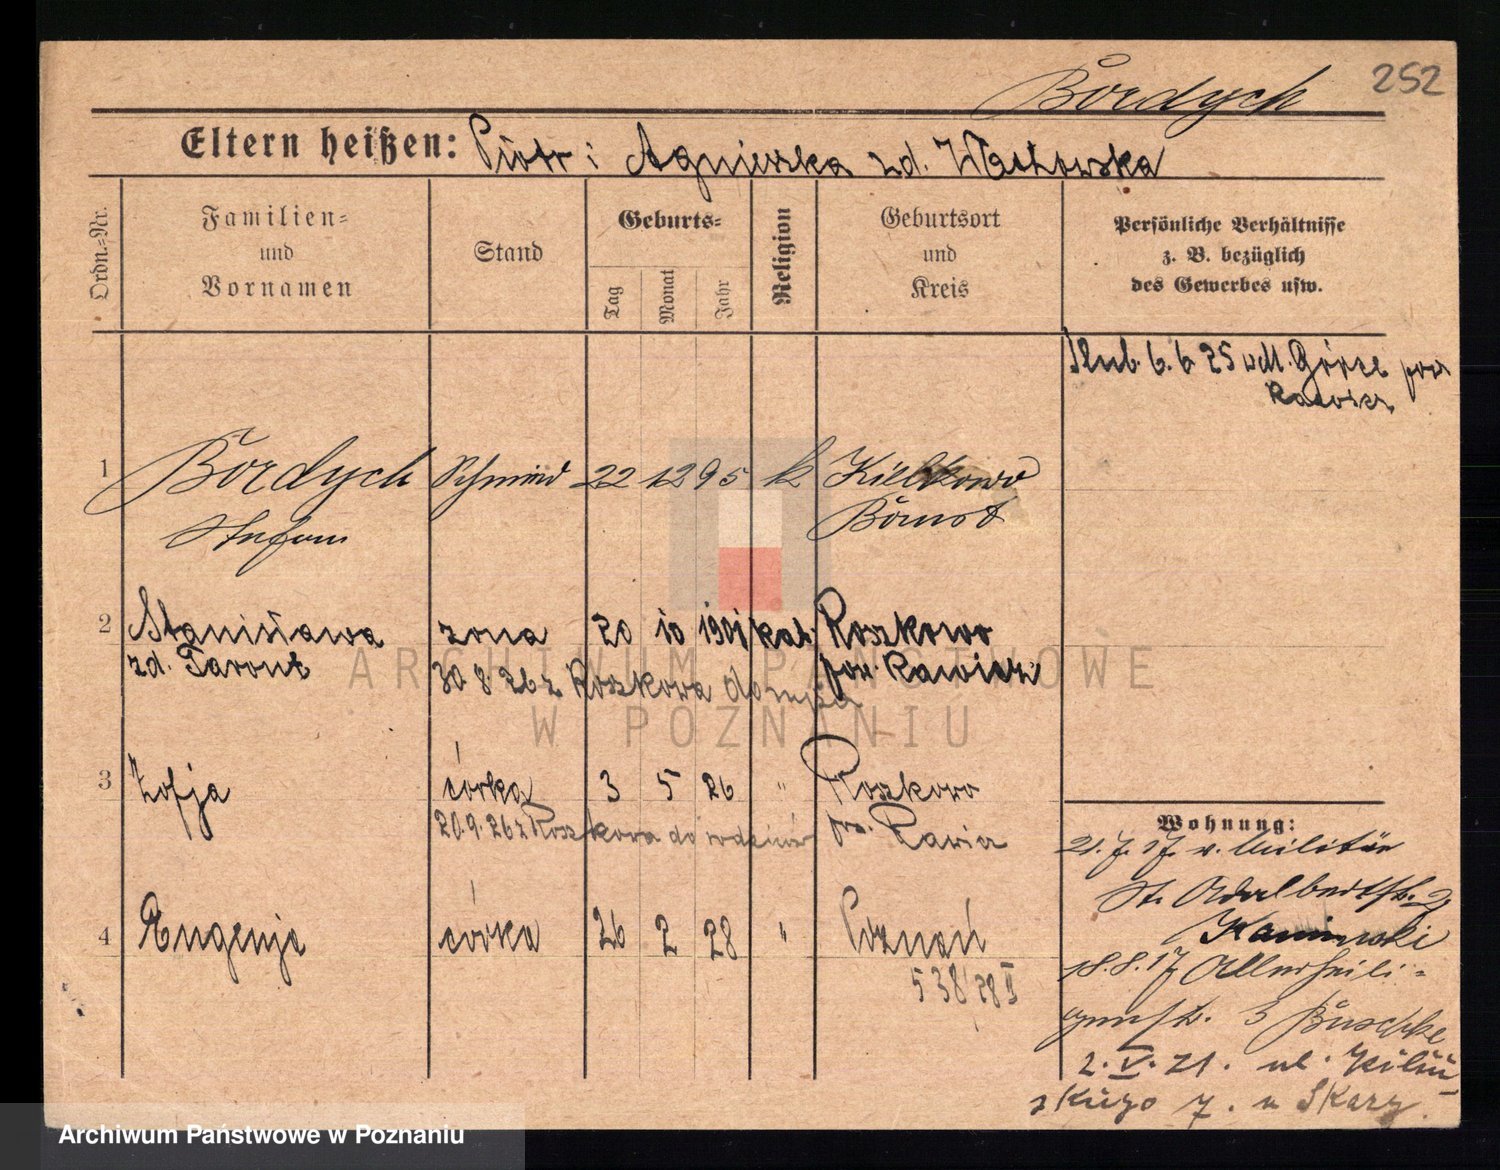 252
Bordych
Eltern heißen: Piotr i Agnieszka zd.
Ordn.=Nr.
Familien=
und
Vornamen
Stand
Geburts=
Tag
Monat
Jahr
Religion
Geburtsort
und
Kreis
Persönliche Verhältnisse
z. B. bezüglich
des Gewerbes usw.
Ślub. 6. 6 25 wdł. Górce pow
Rawicz
1 Bordych Schmied 22 12 95 k Kielkowo
Stefan Bomst
2 Stanisława żona 20 10 1901 kat. Roszkowo
zd. pow. Rawicz
30 8. 26 z Roszkowa do męża
3 Zofja córka 3 5 26 " Roszkowo
20.9.26 z Roszkowa do rodziców pow. Rawicz
4 Eugenja córka 26 2 28 " Poznań
538/28 II
Wohnung:
21. 7. 17. v. Militär
St. Adalbertstr. 2
Kaminski
18.8.17 Allerheili=
genstr. 3 Buschke
2. V. 21. ul.
7. u
ARCHIWUM PAŃSTWOWE
W POZNANIU
Archiwum Państwowe w Poznaniu